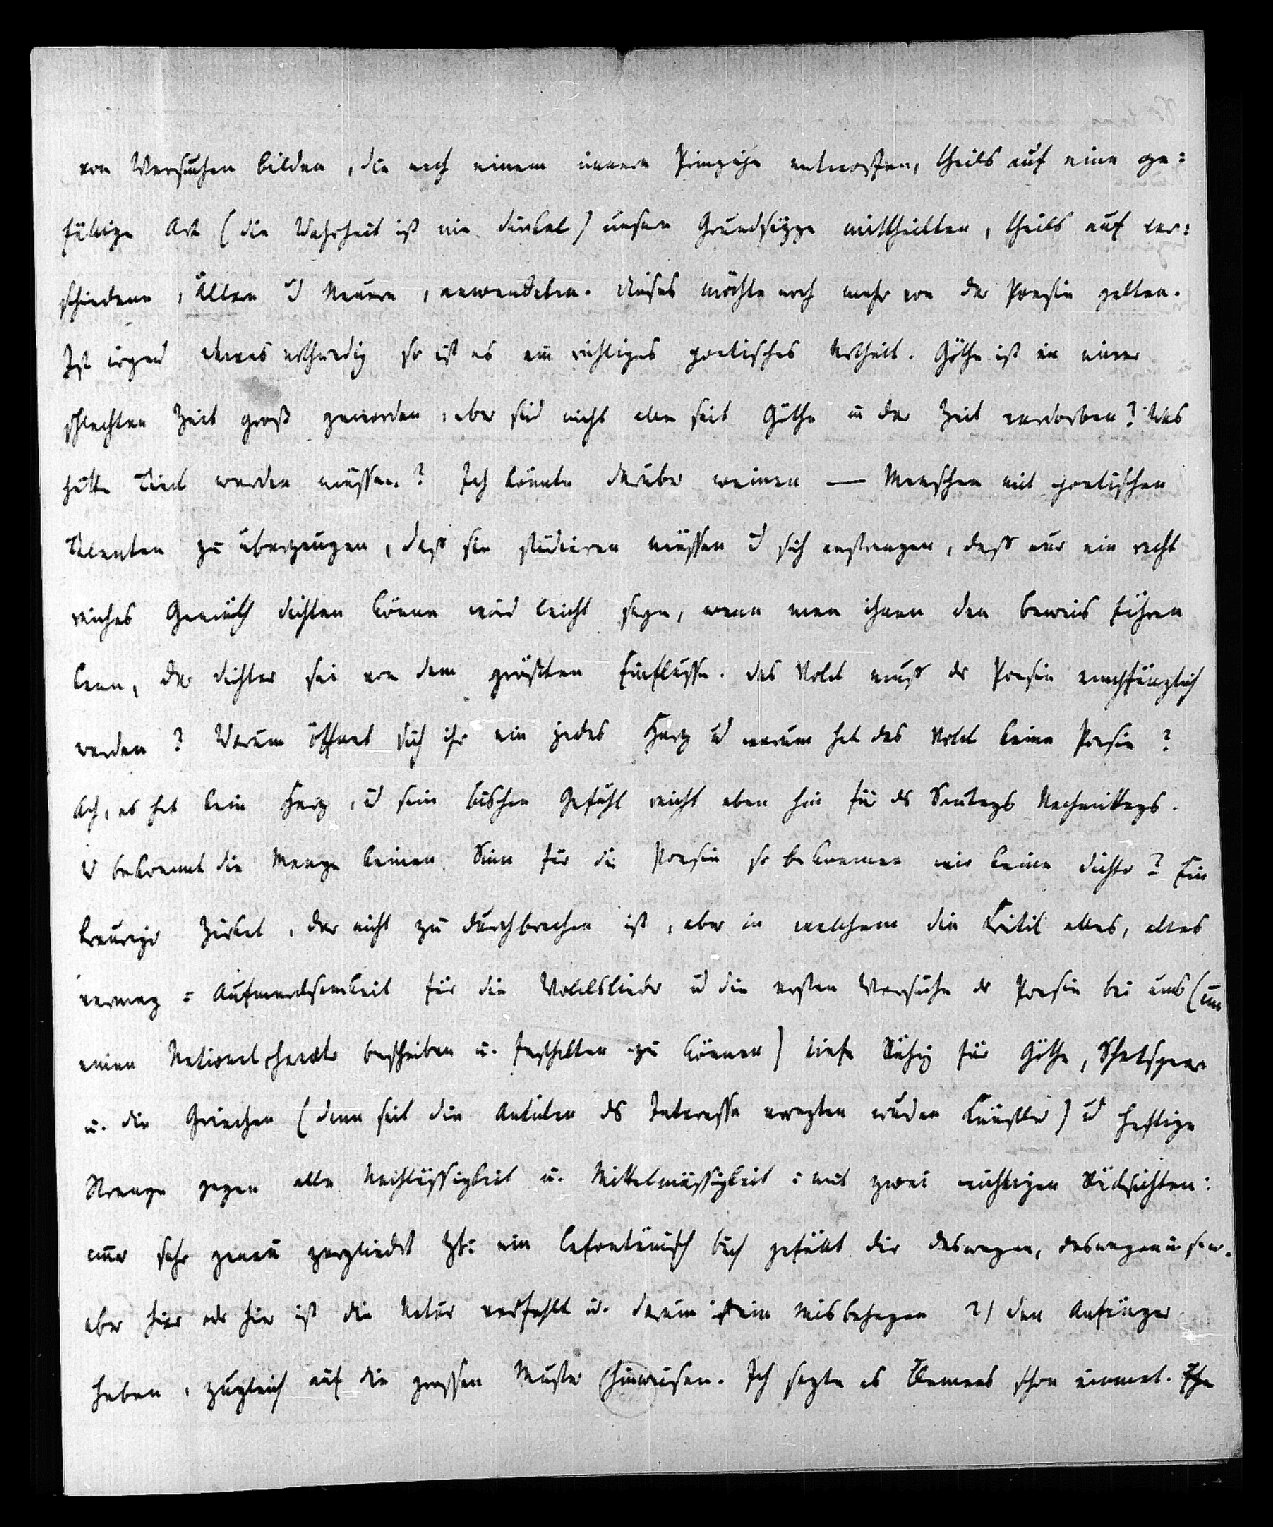 von Versuchen bilden, die nach einem innern Prinzipe entworfen, theils auf eine ge=
fällige Art (die Wahrheit ist nie dunkel) unsere Grundsäzze mittheilten, theils auf ver=
schiedene, Ältere u Neuere, anwendeten. Dieses möchte noch mehr von der Poesie gelten.
Ist irgend etwas nothwendig so ist es ein richtiges poetisches Urtheil. Göthe ist in einer
schlechten Zeit groß geworden, aber sind nicht alle seit Göthe in der Zeit verdorben? Was
hätte Tieck werden müssen? Ich könnte darüber weinen — Menschen mit poetischen
Talenten zu überzeugen, daß sie studieren müssen u sich anstrengen, daß nur ein recht
reiches Gemüth dichten könne wird leicht seyn, wenn man ihnen den Beweis führen
kann, der Dichter sei von dem grösten Einflusse. Das Volk muß der Poesie empfänglich
werden? Warum öffnet sich ihr ein jedes Herz u warum hat das Volk keine Poesie?
Ach, es hat kein Herz, u sein bischen Gefühl reicht eben hin für des Sontags Nachmittags.
U bekommt die Menge keinen Sinn für die Poesie so bekommen wir keine Dichter? Ein
trauriger Zirkel, der nicht zu durchbrechen ist, aber in welchem die Kritik alles, alles
vermag = Aufmerksamkeit für die Volkslieder u die ersten Versuche der Poesie bei uns (um
einen Nationalcharakter beschreiben u. festhalten zu können) tiefe für Göthe, Shakspear
u. die Griechen (denn seit die Antiken das Interesse erregten wurden Künstler) u heftige
Strenge gegen alle Nachlässigkeit u. Mittelmässigkeit: mit zwei wichtigen Rücksichten:
nur sehr genau zergliedert zb: ein Lafontänisch Buch gefällt dir deswegen, deswegen u s.w.
aber hier oder hier ist die Natur verfehlt u. darum dein Misbehagen 2) den Anfänger
heben, zugleich auf die grossen Muster hinweisen. Ich sagte es Clemens schon einmal.